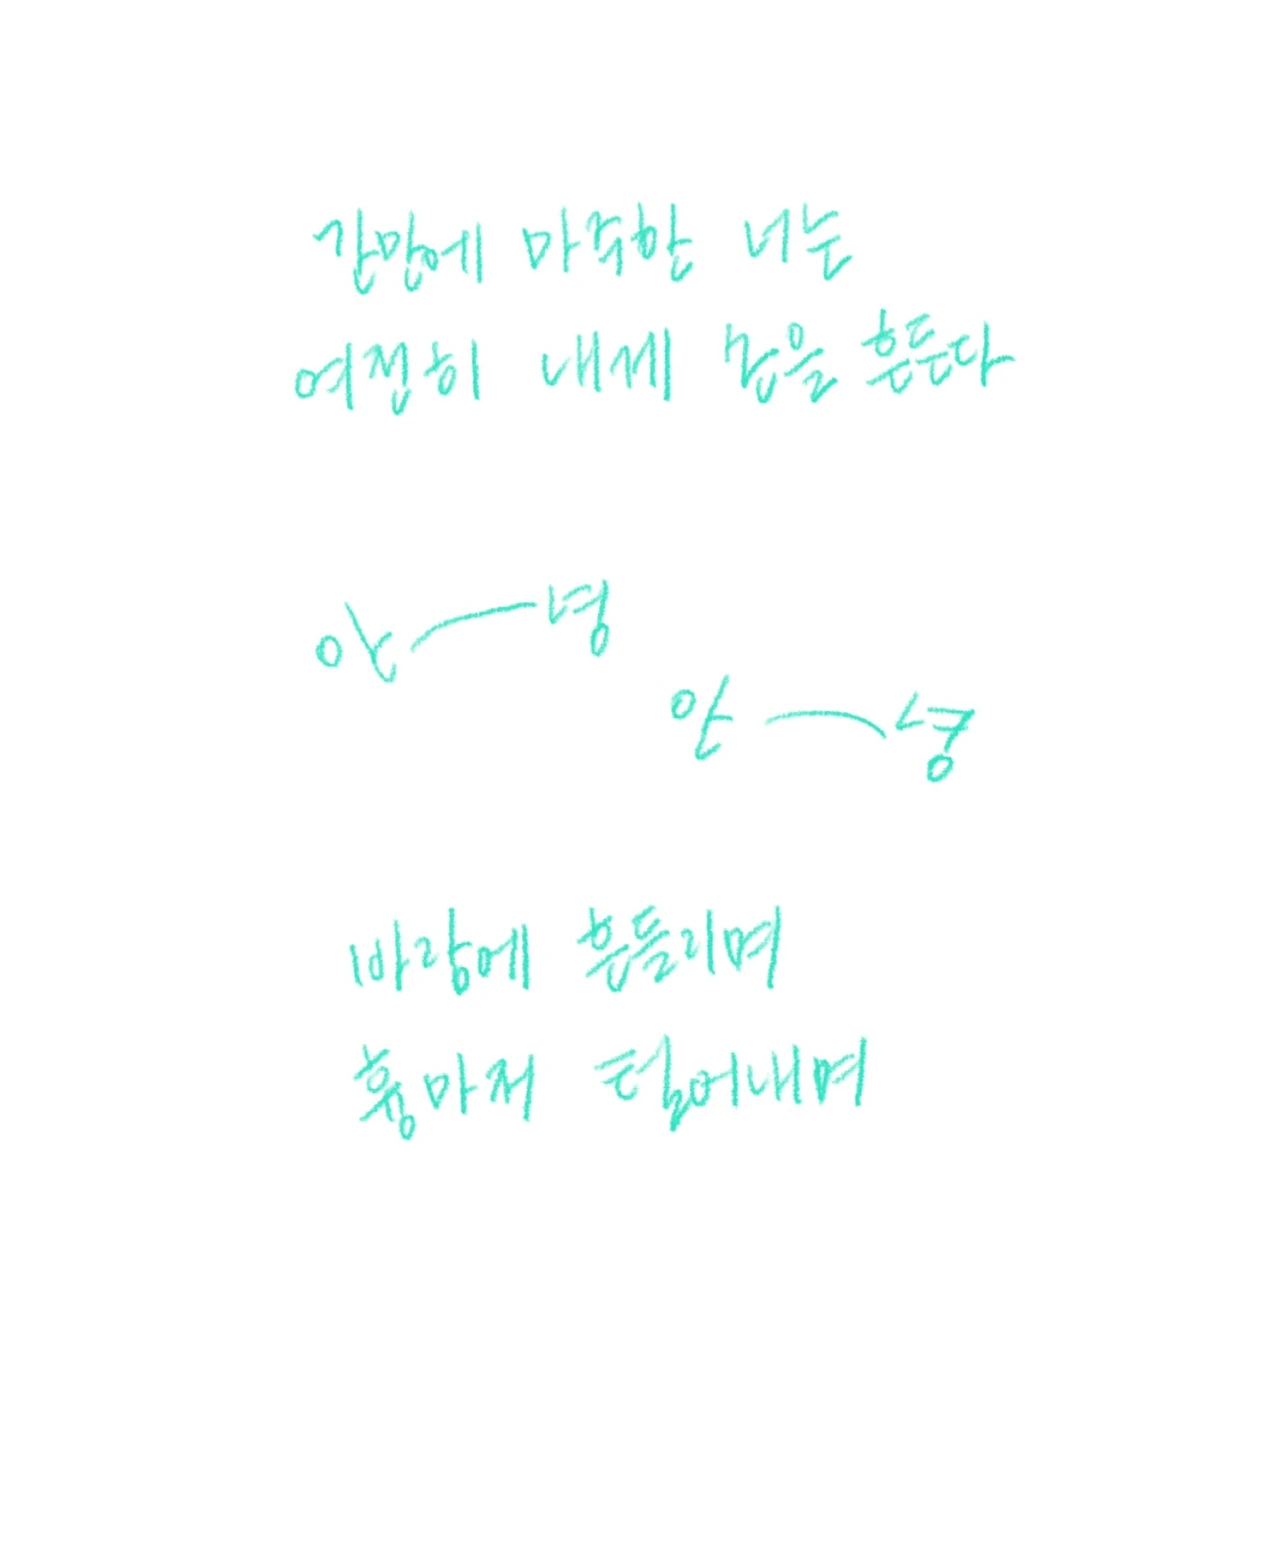 간만에 마주한 너는
여전히 내게 손을 흔든다
안——녕
안——녕
바람에 흔들리며
흉마저 털어내며